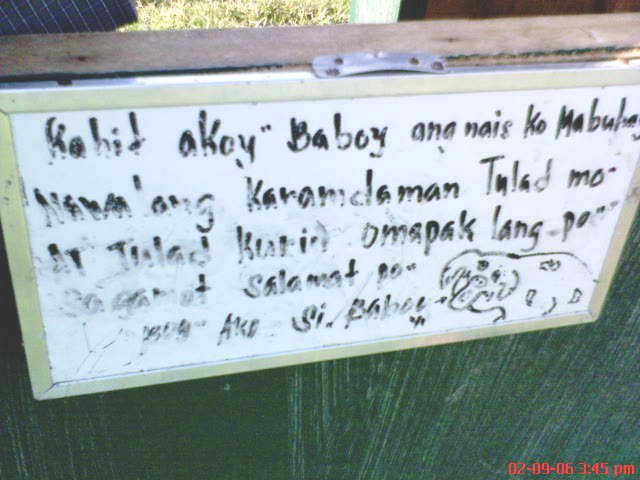 Kahit akoy" Baboy ang nais ko Mabuhay
Nawalang karamdaman Tulad mo-
At Tulad Kurin omapak lang po"
sagamot salamat po-
Ako si Baboy"
02-09-06 3:45 pm